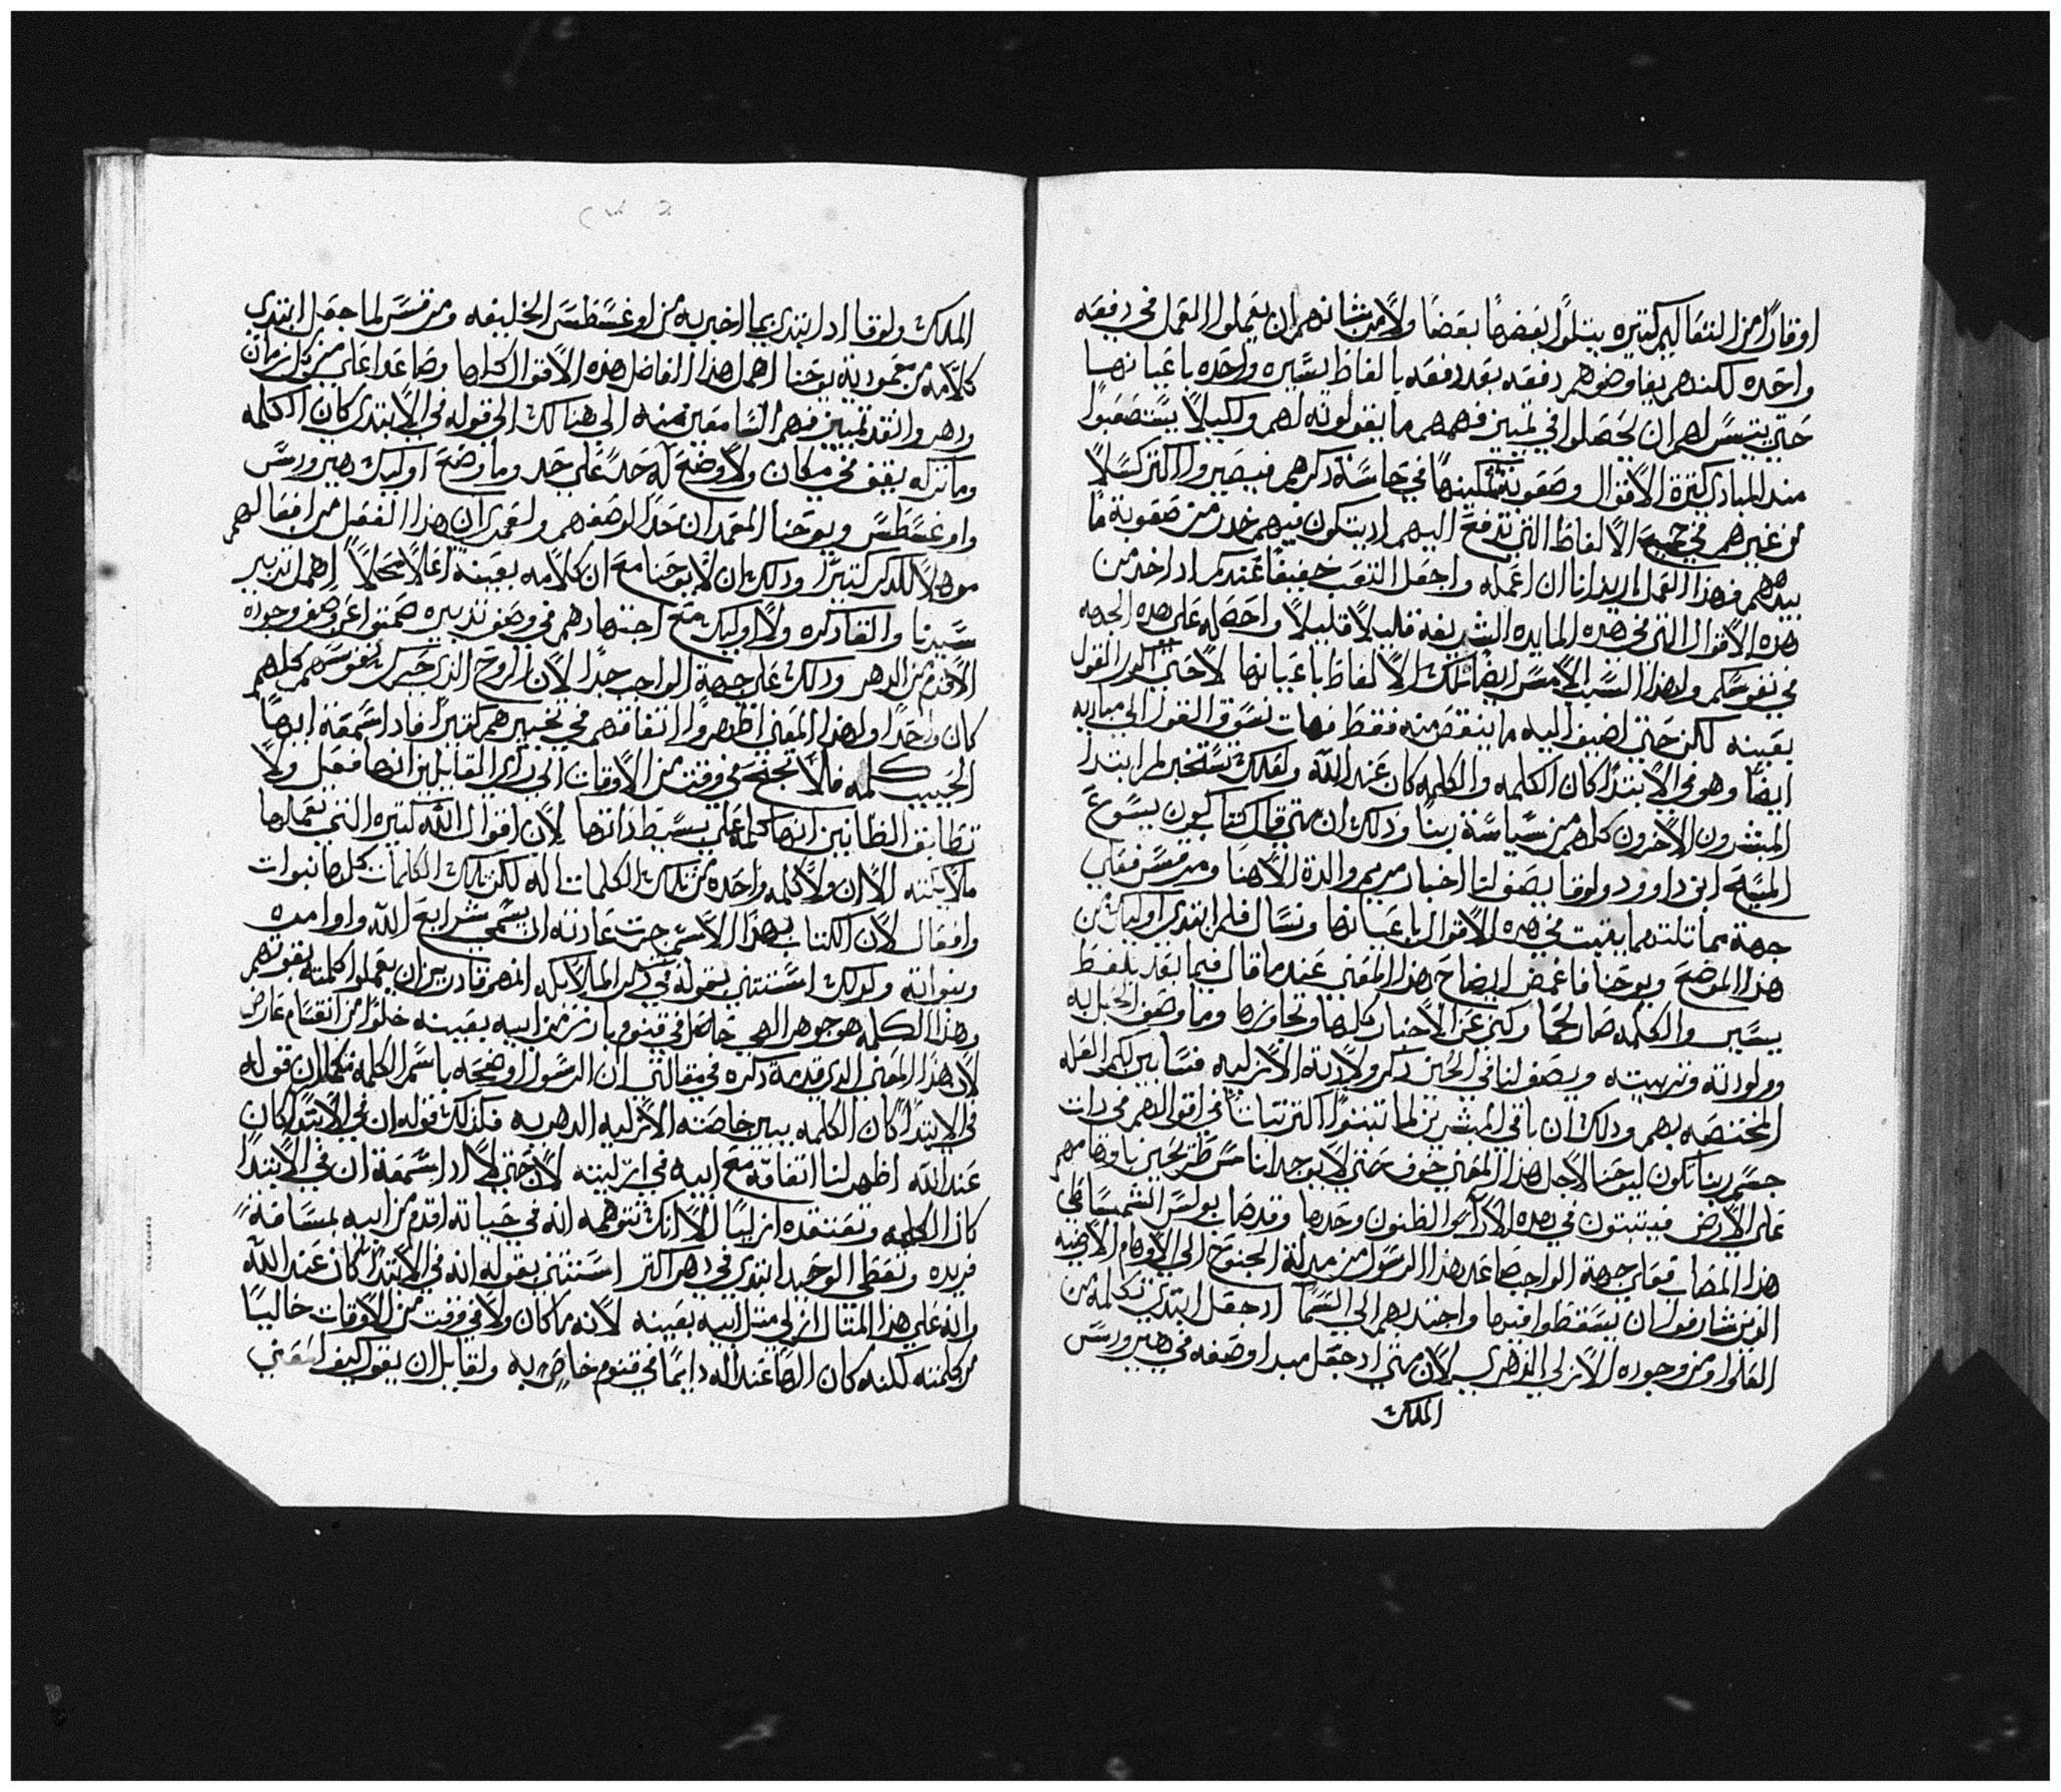 اوقارًا من التقاليم كتيره يتلوا بعضها بعضًا ولا من شانهم ان يعملوا العمل في دفعه
واحده لكنهم يفاوضوهم دفعه بعد دفعه بالفاظ يسيره واحده باعيانها
حتى يتيسر لهم ان يحصلوا في تمييز فهمهم ما يقولونه لهم ولكيلا يستصعبوا
منذ المبادي كترة الاقوال وصعوبة تمكينها في حاسة ذكرهم فيصيروا اكتر كسلًا
من غيرهم في جميع الالفاظ التي تدفع اليهم اد يتكون فيهم خدر من صعوبة ما
بيدهم فهذا العمل اريد انا ان اعمله واجعل التعب خفيفًا عندكم اد اخد من
هده الاقوال التي في هده المايده الشريفه قليلًا قليلًا واحصله على هده الجهه
في نفوسكم ولهذا السبب الامس ايضًا تلك الالفاظ باعيانها لا حتى اكرر القول
بعينه لكن حتى اضيف اليه ما ينقص منه فقط فهات نسوق القول الي مباديه
ايضًا وهو في الابتدا كان الكلمه والكلمه كان عند الله ولعلك تستخبر لم ابتدا
المبشرون الاخرون كلهم من سياسة ربنا وذلك ان متى قال كتاب كون يسوع
المسيح ابن داوود ولوقا يصف لنا اخبار مريم والدة الاهنا ومرقس فعلى
جهة مماتلتهما يتبت في هده الاقوال باعيانها ونسال فلم ابتدى اوليك من
هذا الموضع ويوحنا فاغمض ايضاح هذا المعنى عند ما قال فيما بعد بلفظ
يسير والكلمه صار لحمًا وكتم عن الاخبار كلها وتجاوزها وما وصف الحبل به
وولودته وتربيته ويصف لنا في الحين ذكر ولادته الازليه فسابين لكم العله
المختصه بهم وذلك ان باقي المبشرين لما تبتوا اكتر تباتًا في اقوالهم في ذات
جسم ربنا تكون ليوحنا لاجل هذا المعنى خوف حتى لا يوجد اناس طريحين باوهامهم
على الارض فيتبتون في هده الارآء والظنون وحدها وقد صاب بولس الشميساطي
هذا المصاب فعلى جهة الواجب صاعد هذا الرسول من ميله الجنوح الي الاوهام الارضيه
الدين شارفوا ان يسقطوا فيها واجتدبهم الي السما اد جعل ابتدى تكلمه من
العلوا ومن وجوده الازلي الدهري لان متى اد جعل مبدا وصفه في هيرودس
الملك
الملك ولوقا اد ابتدي بما اخبر به من اوغسطس الخليفه ومرقس لما جعل ابتدي
كلامه من معمودية يوحنا اهمل هذا الفاضل هذه الاقوال كلها وصاعدا على من كل زمان
ودهر وانفد تمييز فهم السامعين منه الي هنالك الي قوله في الابتدى كان الكلمه
وما تركه يقف في مكان ولا وضع له حدًا على حد وما وضع اوليك هيرودس
واوغسطس ويوحنا المعمدان حدًا لوصفهم ولعمري ان هذا الفعل من افعالهم
موهلًا للذكر كتيرًا وذلك ان لا يوحنا مع ان كلامه بعينه اعلا محلًا اهمل تدبير
سيدنا والغا ذكره ولا اوليك مع اجتهادهم في وصف تدبيره صمتوا عن وصف وجوده
الاقدم من الدهر وذلك على جهة الواجب جدًا لان الروح الذي حرك نفوسهم كلهم
كان واحدًا ولهذا المعنى اظهروا اتفاقهم في تخبيرهم كتيرًا فاد اسمعته ايها
الحبيب كلمه فلا تجنح في وقت من الاوقات الي راي القايلين انها فعل ولا
تطابق الظانين انها كلمه على بسيط ذاتها لان اقوال الله كتيره التي تعملها
ملايكته الا ان ولا كلمه واحده من تلك الكلمات اله لكن تلك الكلمات كلها نبوات
وافعال لان الكتاب بهذا الاسم جرت عادته ان يسمى شرايع الله واوامره
ونبواته وكدلك استتنى بقوله في ذكر الملايكه انهم قادرين ان يعملوا كلمته بقوتهم
وهذا الكلمه هو جوهر الهي حاصل في قنوم بارز من ابيه بعينه خلوًا من انقسام عارض
لان هذا المعنى الدي قدمت ذكره في مقالتي ان الرسول اوضحه باسم الكلمه فكما ان قوله
في الابتدا كان الكلمه يبين خاصته الازليه الدهريه فكذلك قوله ان في الابتدا كان
عند الله اظهر لنا اتفاقه مع ابيه في ازليته لا حتى لا اد اسمعت ان في الابتدا
كان الكلمه وتعتقده ازليًا الا انك تتوهمه انه في حياته اقدم من ابيه بمسافة
فريده وتعطي الوحيد ابتدي في دهر اكتر استتنى بقوله انه في الابتدا كان عند الله
وانه على هذا المتال ازلي متل ابيه بعينه لانه ما كان ولا في وقت من الاوقات خاليًا
من كلمته لكنه كان الهًا عند اله دايمًا في قنوم خاص به ولقايل ان يقول كيف استغني